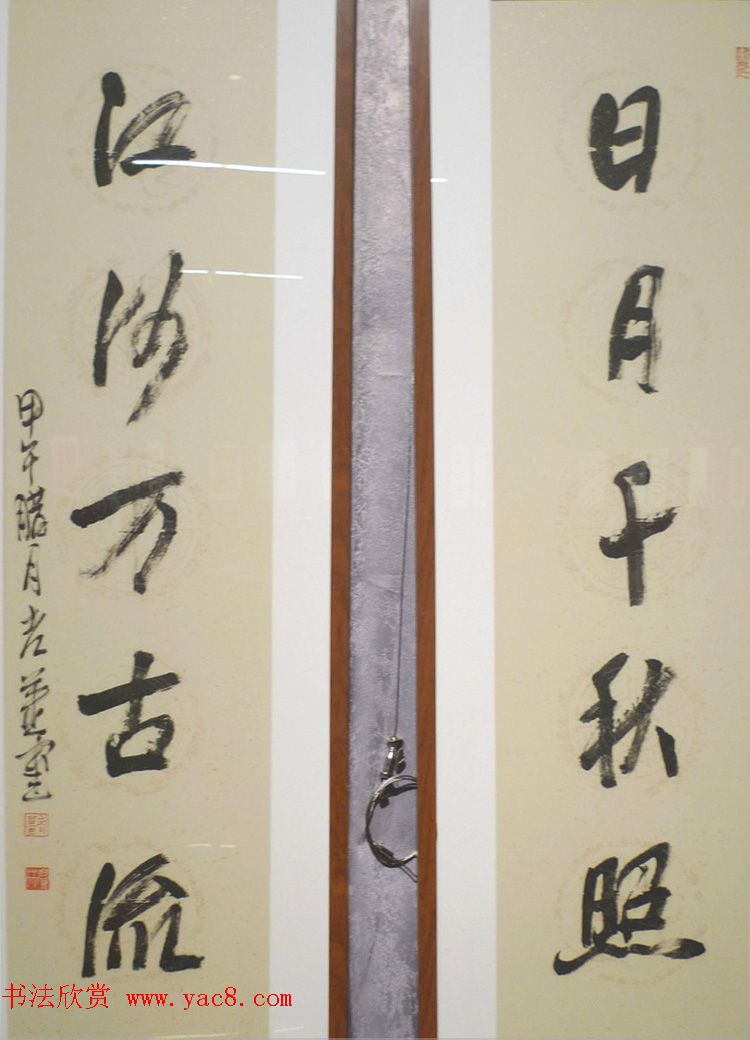 日月千秋照
江河万古流
甲午腊月
书法欣赏 www.yac8.com